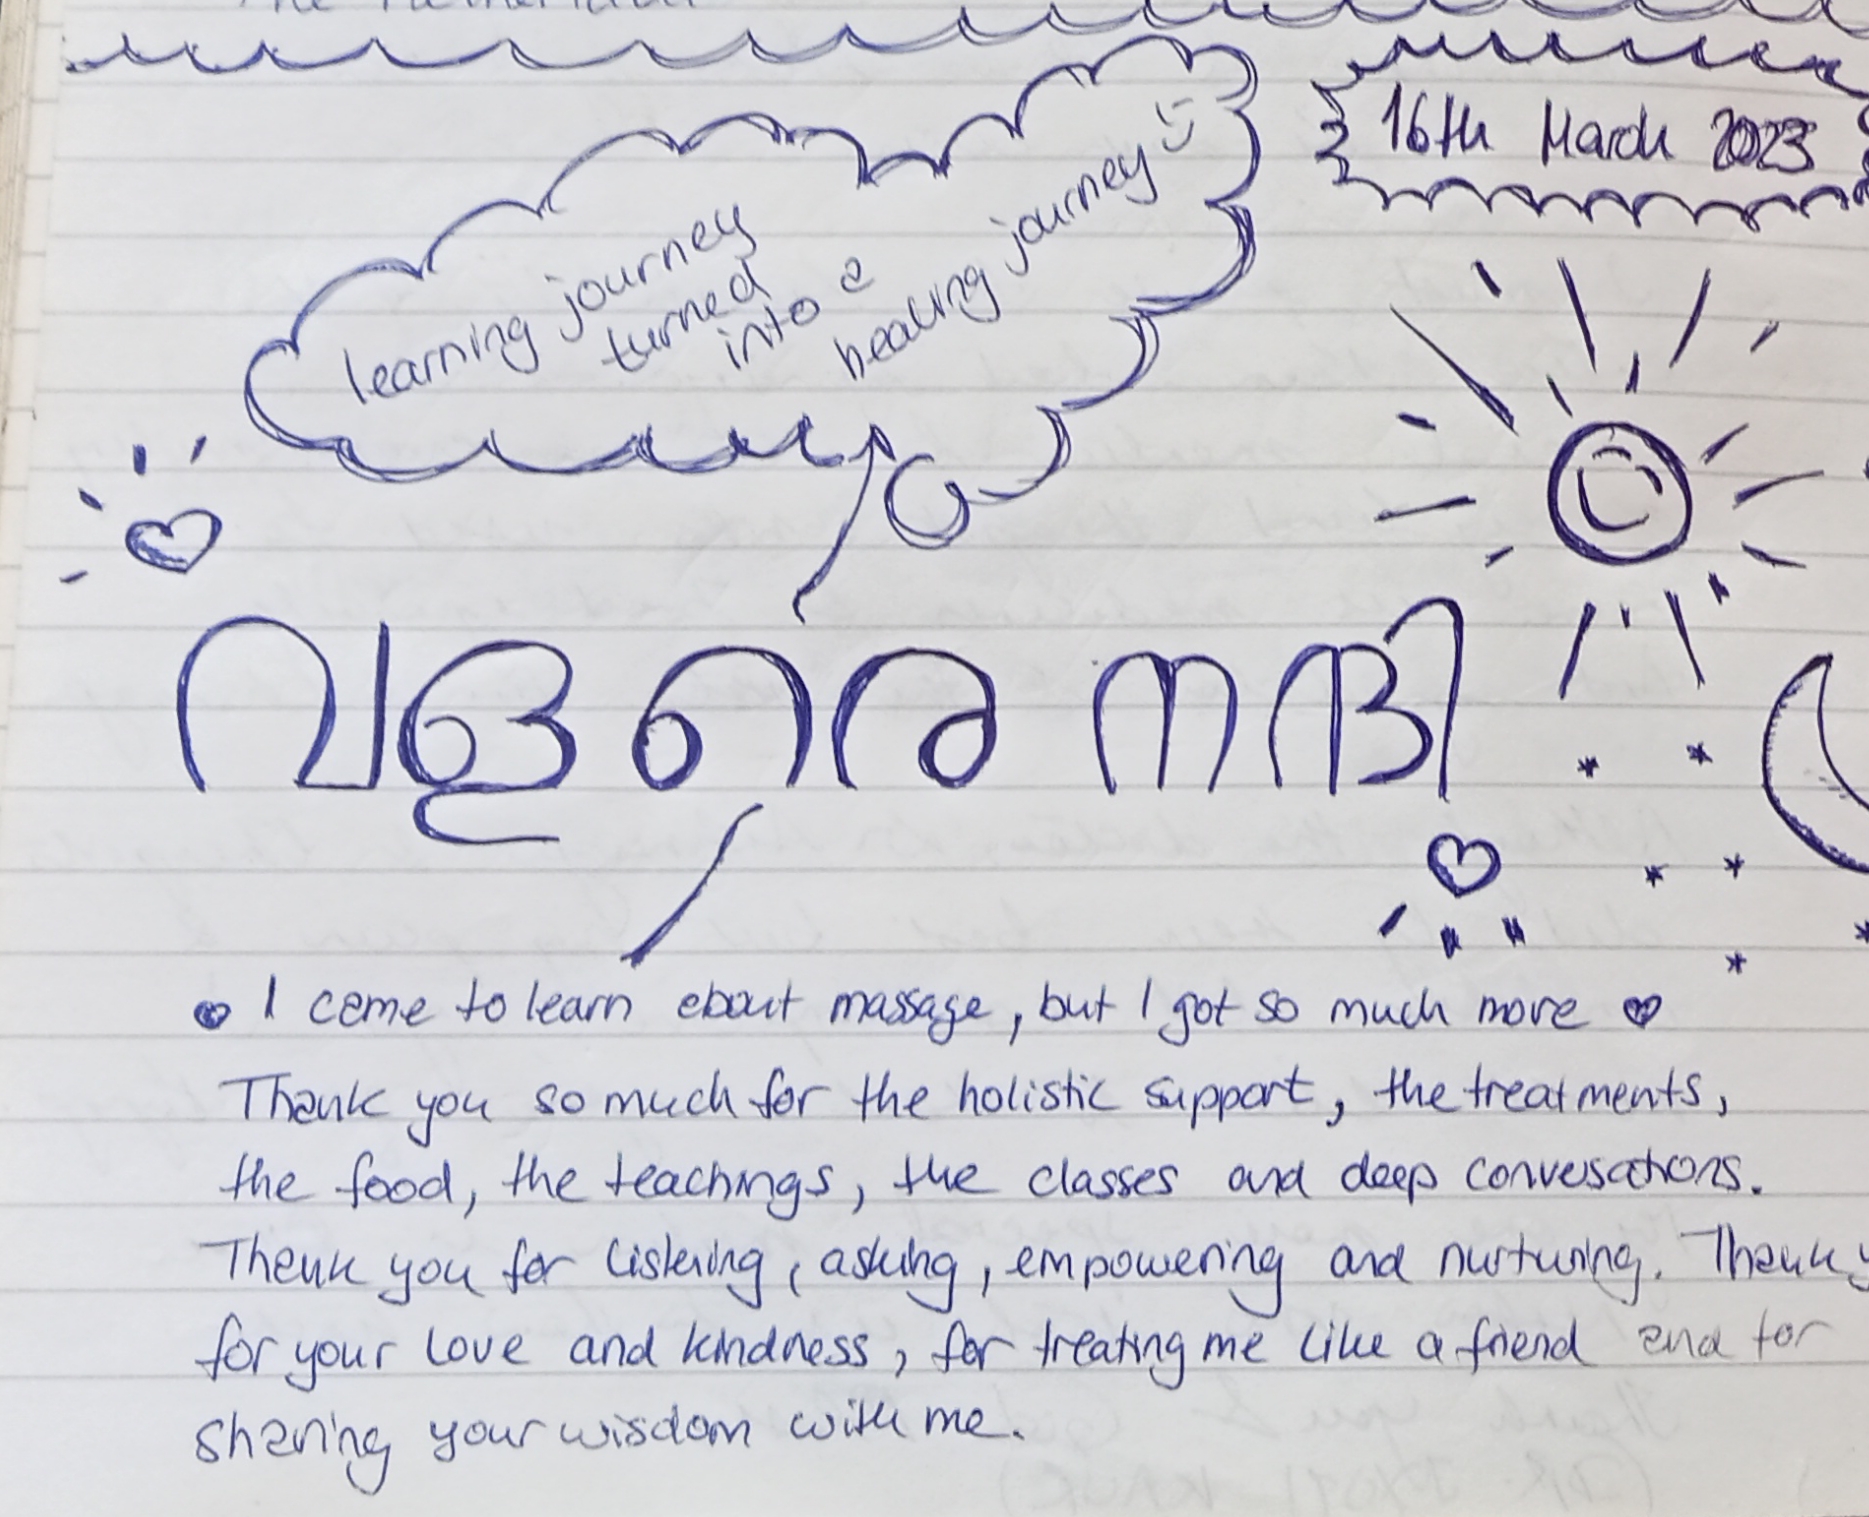 The Netherland
16th March 2023
learning journey
turned
into a
healing journey
വളരെ നന്ദി
I came to learn about massage, but I got so much more
Thank you so much for the holistic support, the treatments,
the food, the teachings, the classes and deep conversations.
Thank you for listening, asking, empowering and nurturing. Thank y
for your love and kindness, for treating me like a friend and for
sharing your wisdom with me.